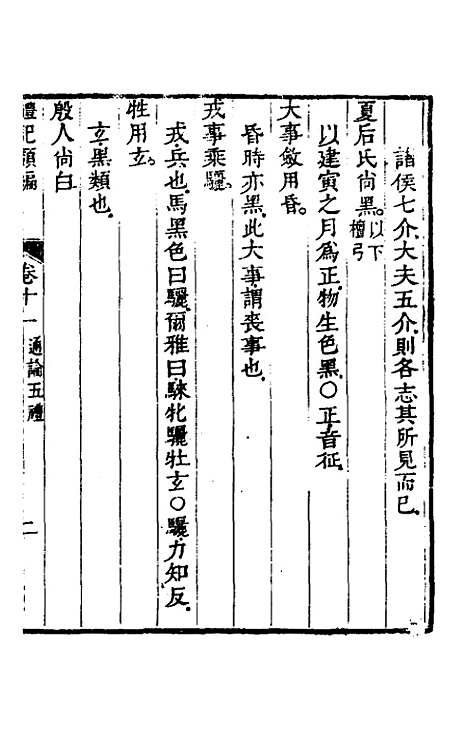 諸侯七介大夫五介則各志其所見而已
夏后氏尚黑。以下檀弓
以建寅之月爲正物生色黑○正音征
大事斂用昏。
昏時亦黑此大事謂喪事也
戎事乘驪。
戎兵也馬黑色曰驪爾雅曰騋牝驪牡玄○驪力知反
牲用玄。
玄黑類也
殷人尚白
禮記類編
卷十一 通論五禮 二